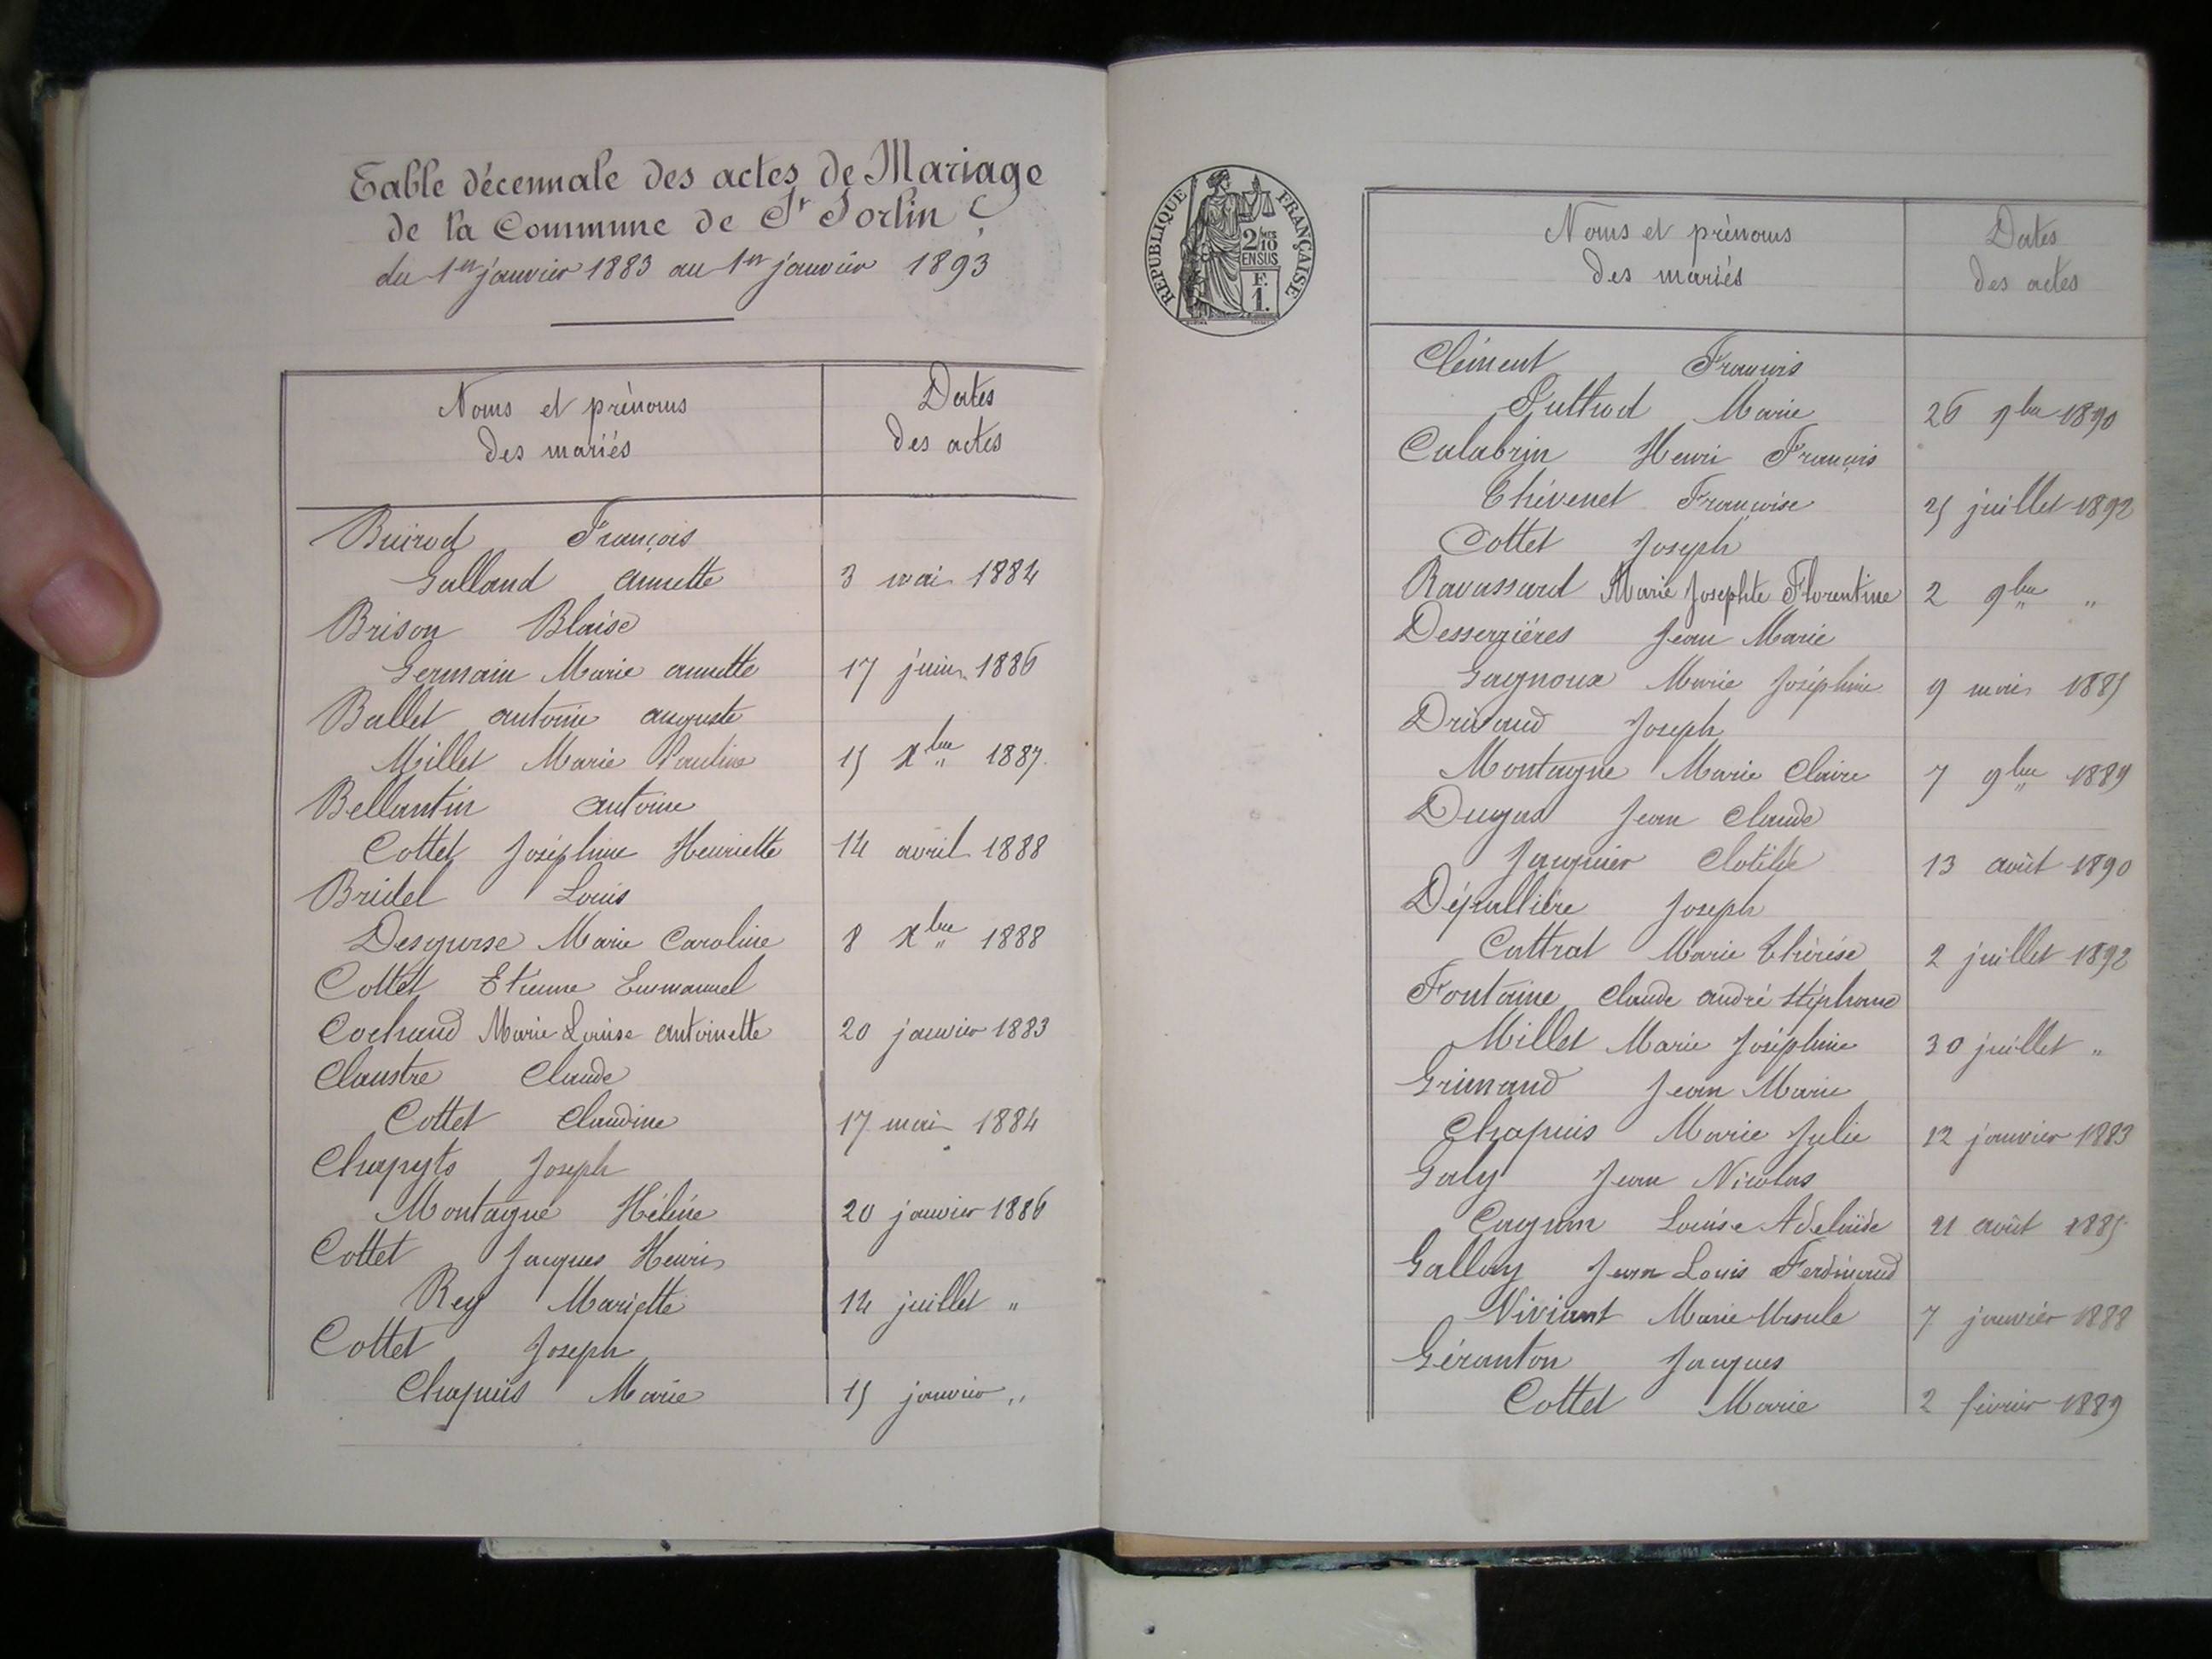 Table décennale des actes de Mariage
de la Commune de St Sorlin
du 1er janvier 1883 au 1er janvier 1893
Noms et prénoms
des mariés
Dates
des actes
Buirod François
Galland annette 3 mai 1884
Brison Blaise
Germain Marie annette 17 juin 1886
Ballet antoine auguste
Millet Marie Pauline 15 Xbre 1887
Bellantin antoine
Cottet Joséphine Henriette 14 avril 1888
Bridel Louis
Marie Caroline 8 Xbre 1888
Cottet Etienne Emmanuel
Cochaud Marie Louise antoinette 20 janvier 1883
Claustre Claude
Cottet Claudine 17 mai 1884
Joseph
Montagne Hélène 20 janvier 1886
Cottet Jacques Henri
Rey Mariette 14 juillet "
Cottet Joseph
Chapuis Marie 15 janvier "
REPUBLIQUE FRANÇAISE
2/10 MES
EN SUS
F.
1.
Noms et prénoms
des mariés
Dates
des actes
Clément François
Marie 26 9bre 1890
Calabrin Henri François
Thévenet Françoise 25 juillet 1892
Cottet Joseph
Ravassard Marie Josephte Florentine 2 9bre "
Jean Marie
Gagnoux Marie Joséphine 9 mai 1885
Drivaud Joseph
Montagne Marie Claire 7 9bre 1889
Dugas Jean Claude
Jacquier Clotilde 13 août 1890
Dépallière Joseph
Cattrat Marie Thérèse 2 juillet 1892
Fontaine Claude andré Stéphane
Millet Marie Joséphine 30 juillet "
Grimand Jean Marie
Chapuis Marie Julie 12 janvier 1883
Galy Jean Nicolas
Louise Adelaïde 21 août 1885
Gallay Jean Louis Ferdinand
Viviant Marie Ursule 7 janvier 1888
Géranton Jacques
Cottet Marie 2 février 1889